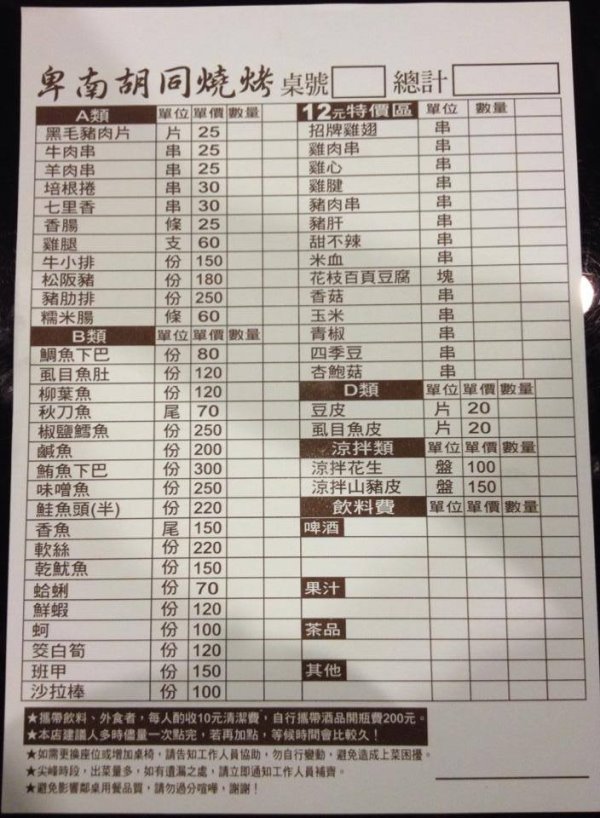 卑南胡同燒烤 桌號 總計
A類 單位 單價 數量
黑毛豬肉片 片 25
牛肉串 串 25
羊肉串 串 25
培根捲 串 30
七里香 串 30
香腸 條 25
雞腿 支 60
牛小排 份 150
松阪豬 份 180
豬肋排 份 250
糯米腸 條 60
B類 單位 單價 數量
鯛魚下巴 份 80
虱目魚肚 份 120
柳葉魚 份 120
秋刀魚 尾 70
椒鹽鱈魚 份 250
鹹魚 份 200
鮪魚下巴 份 300
味噌魚 份 250
鮭魚頭(半) 份 220
香魚 尾 150
軟絲 份 220
乾魷魚 份 150
蛤蜊 份 70
鮮蝦 份 120
蚵 份 100
筊白筍 份 120
班甲 份 150
沙拉棒 份 100
12元特價區 單位 數量
招牌雞翅 串
雞肉串 串
雞心 串
雞腱 串
豬肉串 串
豬肝 串
甜不辣 串
米血 串
花枝百頁豆腐 塊
香菇 串
玉米 串
青椒 串
四季豆 串
杏鮑菇 串
D類 單位 單價 數量
豆皮 片 20
虱目魚皮 片 20
涼拌類 單位 單價 數量
涼拌花生 盤 100
涼拌山豬皮 盤 150
飲料費 單位 單價 數量
啤酒
果汁
茶品
其他
★攜帶飲料、外食者，每人酌收10元清潔費，自行攜帶酒品開瓶費200元。
★本店建議人多時儘量一次點完，若再加點，等候時間會比較久！
★如需更換座位或增加桌椅，請告知工作人員協助，勿自行變動，避免造成上菜困擾。
★尖峰時段，出菜量多，如有遺漏之處，請立即通知工作人員補齊。
★避免影響鄰桌用餐品質，請勿過分喧嘩，謝謝！